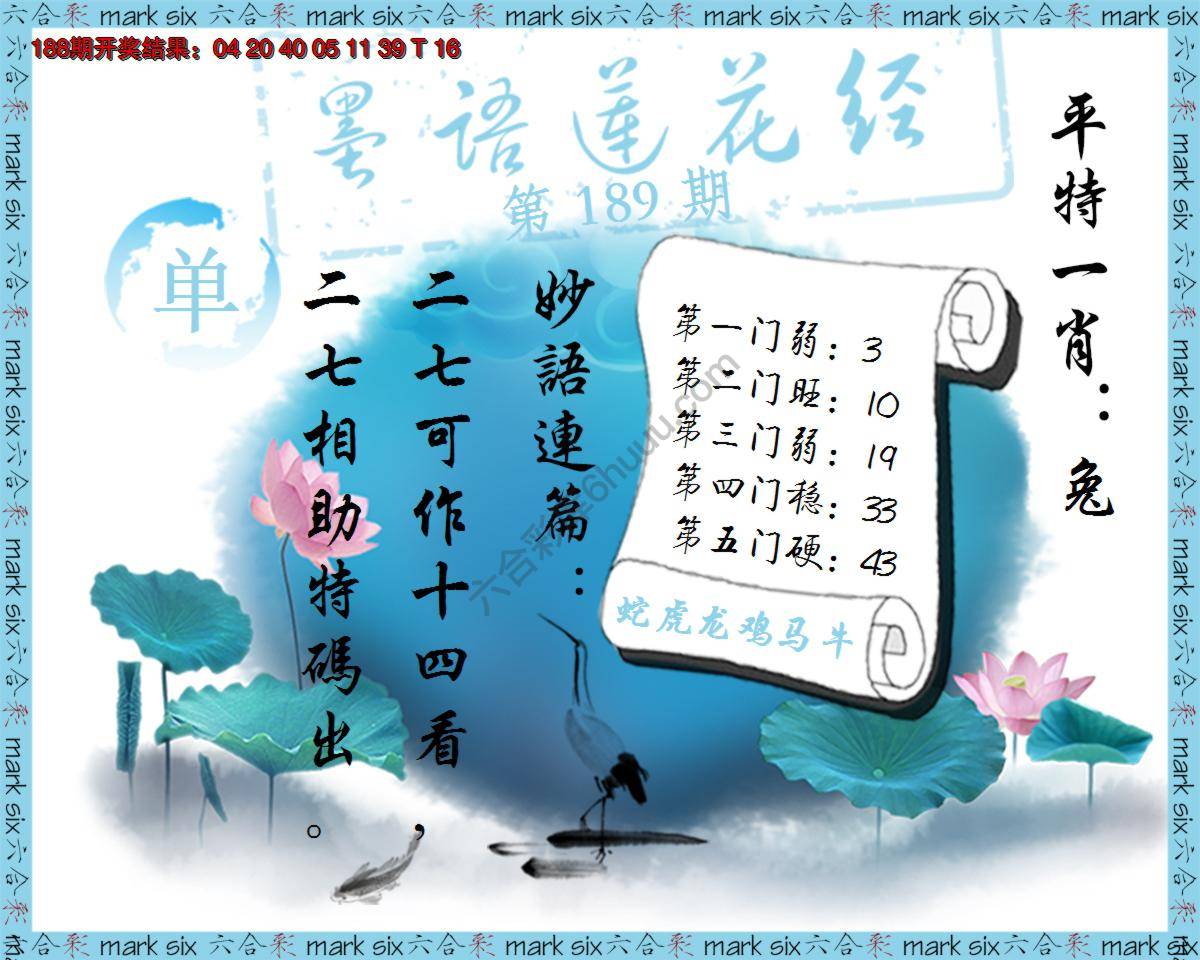 六合彩 mark six 六合彩 mark six 六合彩 mark six 六合彩 mark six 六合彩 mark six 六合彩 mark six
188期开奖结果：04 20 40 05 11 39 T 16
墨語莲花经
第 189 期
单
平特一肖：兔
妙語連篇：
二七可作十四看，
二七相助特碼出。
第一门弱：3
第二门旺：10
第三门弱：19
第四门稳：33
第五门硬：43
蛇虎龙鸡马牛
六合彩 mark six 六合彩 mark six 六合彩 mark six 六合彩 mark six 六合彩 mark six 六合彩 mark six